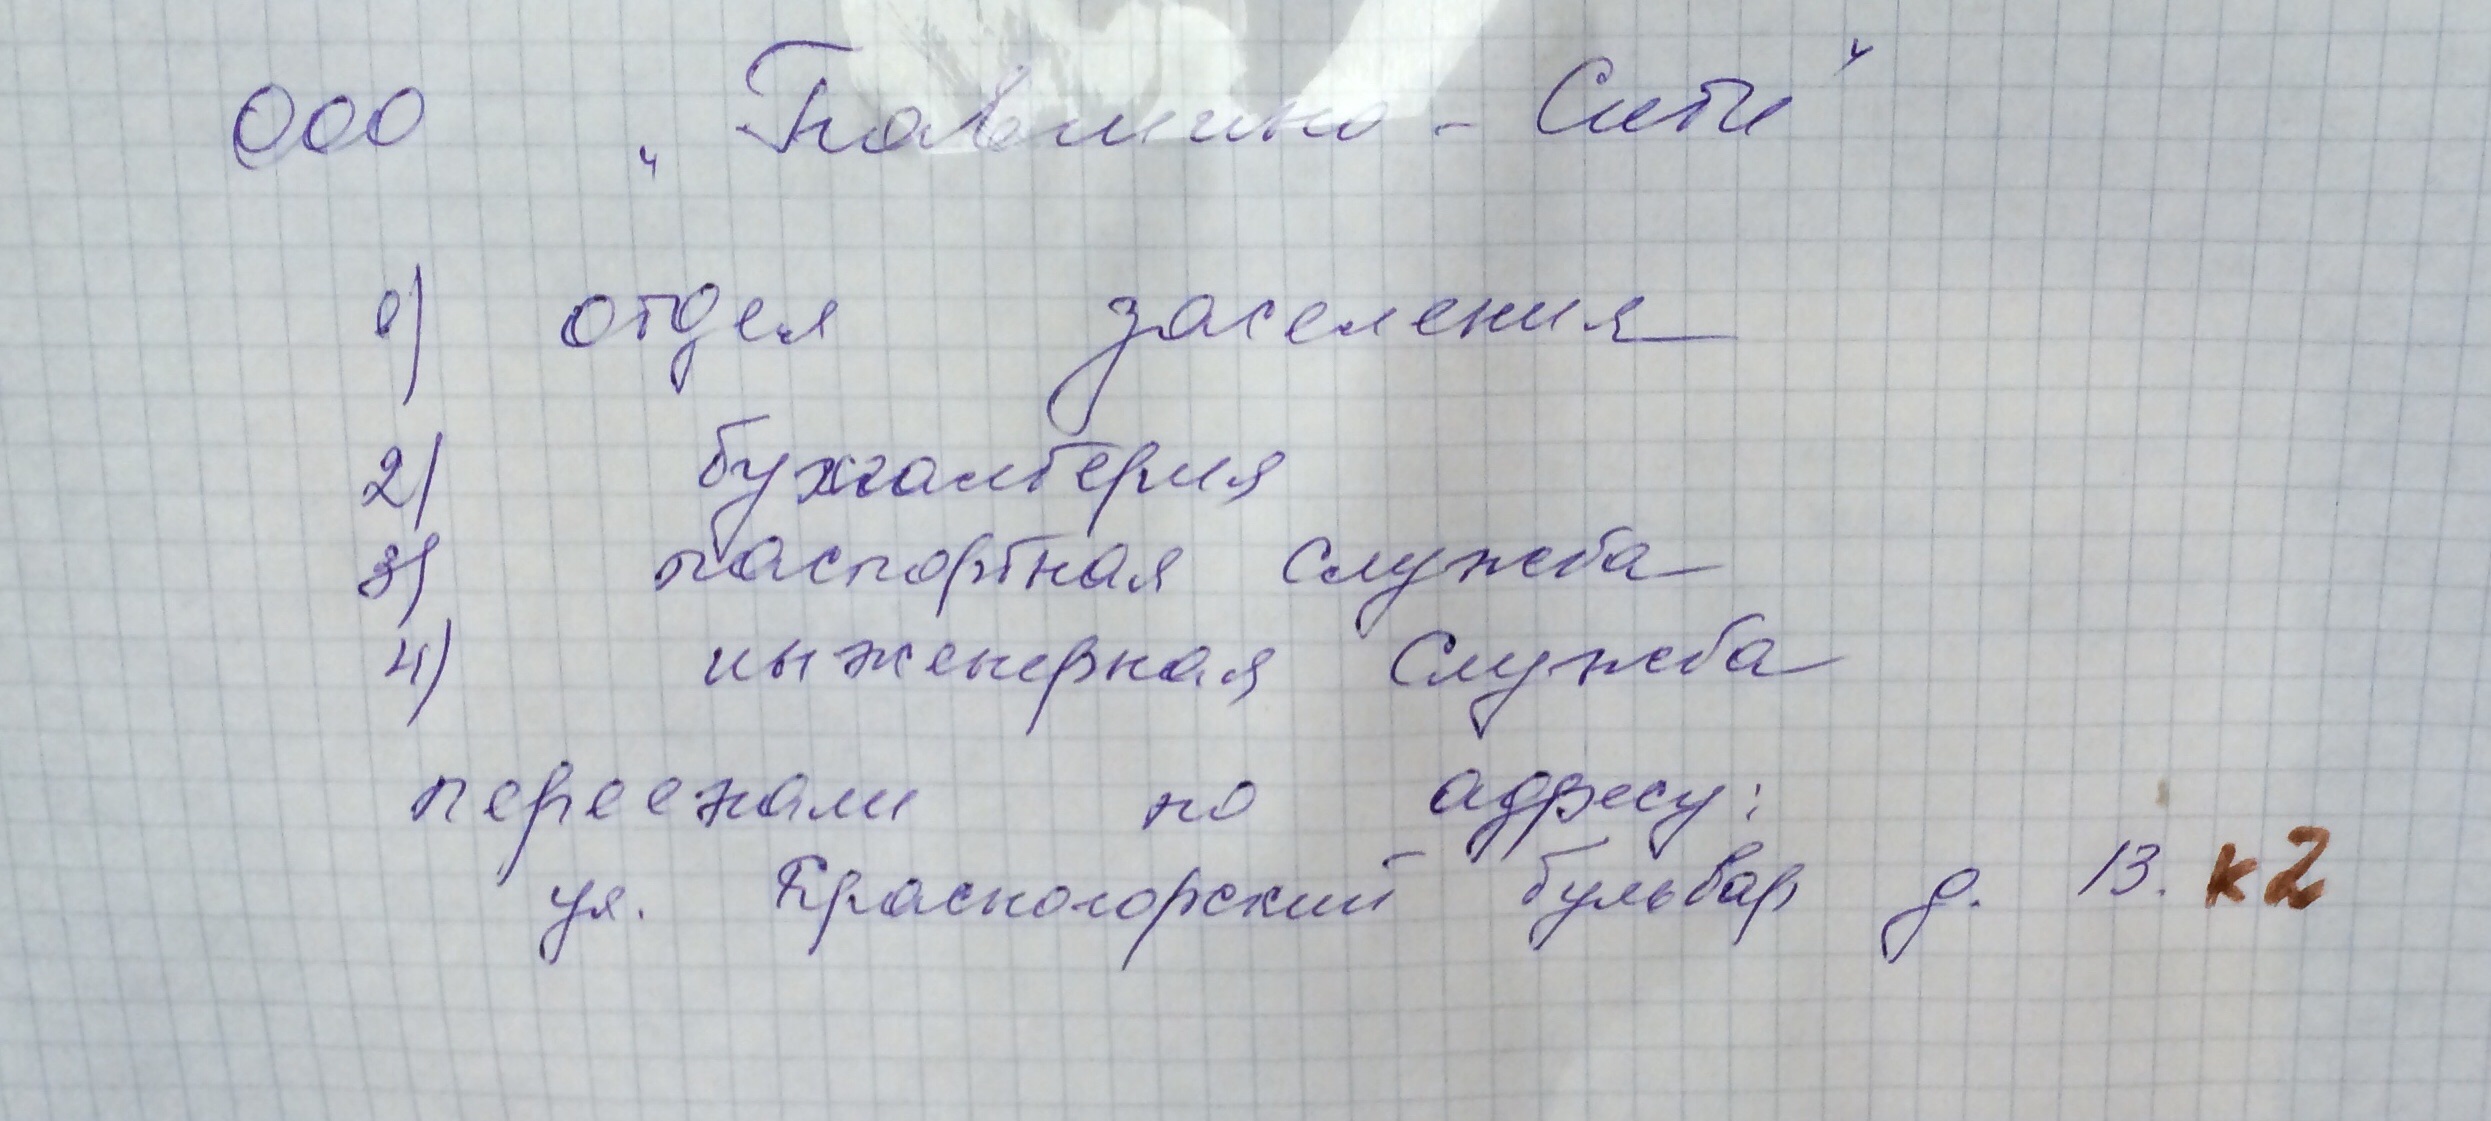 ООО „Павшино - Сити“
1) отдел заселения
2) бухгалтерия
3) паспортная служба
4) инженерная служба
переехали по адресу:
ул. Красногорский бульвар д. 13. к2